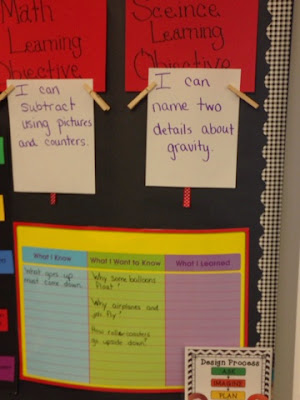 Math
Learning
Objective
Sceince
Learning
Objective
I can
subtract
using pictures
and counters.
I can
name two
details about
gravity.
What I Know
What I Want to Know
What I Learned
What goes up
must come down.
Why some balloons
float?
Why airplanes and
jets fly?
How roller coasters
go upside down?
Design Process
ASK
IMAGINE
PLAN